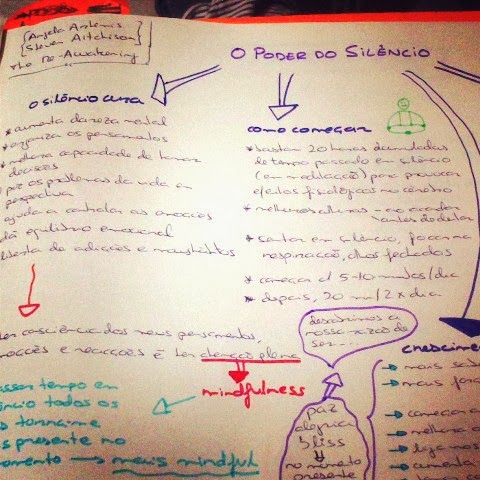 [Angela Artemis
[Steven Aitchison]
The Re-Awakening
O PODER DO SILÊNCIO
O silêncio cura
* aumenta clareza mental
* organiza os pensamentos
* melhora capacidade de tomar
decisões
põe os problemas da vida em
perspectiva
ajuda a controlar as emoções
dá equilíbrio emocional
liberta de adicções e maus hábitos
ter consciência dos meus pensamentos,
emoções e reacções é ter atenção plena
mindfulness
passar tempo em
silêncio todos os
dias torna-me
mais presente no
momento → mais mindful
como começar
* bastam 20 horas acumuladas
de tempo passado em silêncio
(em meditação) para provocar
efeitos fisiológicos no cérebro
* melhores alturas - ao acordar
antes de deitar
* sentar em silêncio, focar na
respiração, olhos fechados
* começar c/ 5-10 minutos/dia
* depois, 20 min/2x dia
descobrimos a
nossa razão de
ser...
paz
alegria
bliss
no momento
presente
crescime
→ mais sa
→ mais for
→ começar a
→ melhora a
→ liga-nos
→ aumenta